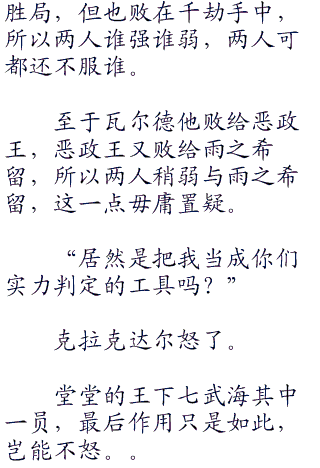 胜局，但也败在千劫手中，
所以两人谁强谁弱，两人可
都还不服谁。
至于瓦尔德他败给恶政
王，恶政王又败给雨之希
留，所以两人稍弱与雨之希
留，这一点毋庸置疑。
“居然是把我当成你们
实力判定的工具吗？”
克拉克达尔怒了。
堂堂的王下七武海其中
一员，最后作用只是如此，
岂能不怒。。